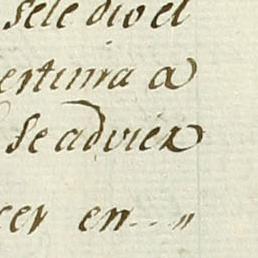 sele dio el
ertinra a
Se advier
cer en.. "